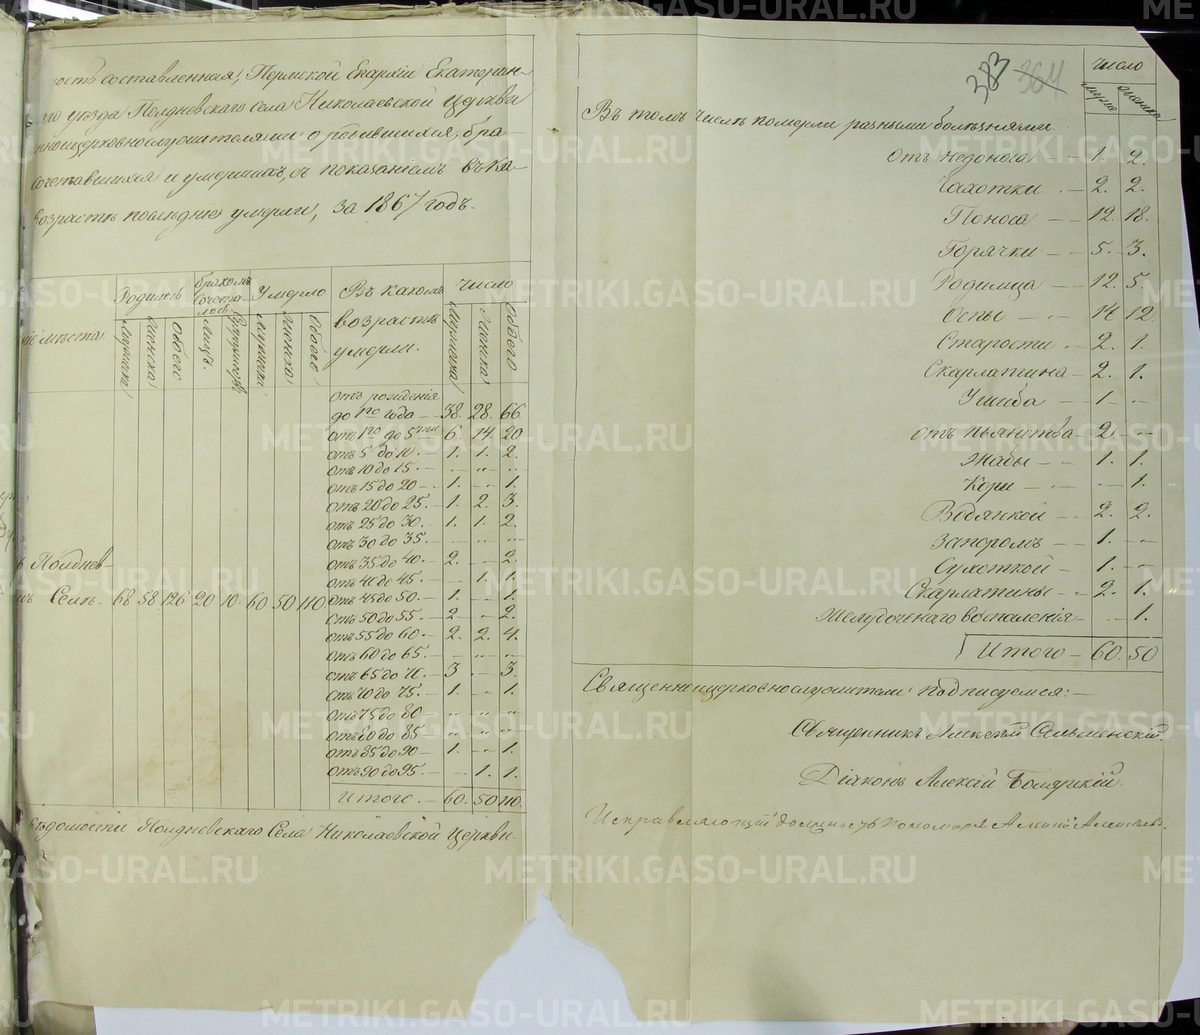 ность составленная, Пермской Епархiи Екатерин-
го уѣзда Полдневскаго села Николаевской Церкви
нноцерковнослужителями о родившихся, бра-
сочетавшихся и умершихъ, съ показанiемъ въ ка-
возрастѣ послѣднiе умерли, за 1867 годъ.
Родилось
бракомъ сочета-лось
Умерло
Въ какомъ возрастѣ умерли.
Число
мѣста
Мужеска
Женска
Обоего
Лицъ.
Мужеска
Женска
Обоего
Мужеска
Женска
Обоего
отъ рожденiя
до 1го года — 38. 28. 66.
отъ 1го до 5ти 6. 14. 20
отъ 5 до 10. — 1. 1. 2.
отъ 10 до 15. — „ „ „
отъ 15 до 20 — 1. „ 1.
отъ 20 до 25. — 1. 2. 3.
отъ 25 до 30. — 1. 1. 2.
отъ 30 до 35. — „ „ „
отъ 35 до 40. — 2. „ 2.
отъ 40 до 45. — „ 1. 1.
Полднев-
Селѣ. 68 58 126 20 10. 60 50 110 отъ 45 до 50. — 1. „ 1.
отъ 50 до 55. — 2 „ 2.
отъ 55 до 60. — 2. 2. 4.
отъ 60 до 65. — „ „ „
отъ 65 до 70. — 3 „ 3.
отъ 70 до 75. — 1. „ 1.
отъ 75 до 80 — „ „ „
отъ 80 до 85 — „ „ „
отъ 85 до 90 — 1. „ 1.
отъ 90 до 95. — „ 1. 1.
Итого. — 60. 50 110.
вѣдомости Полдневскаго Села Николаевской Церкви
383 364
Число
Мужеска
Женска
Въ томъ числѣ померли разными болѣзнями.
Отъ недоноса — 1. 2.
Чахотки. — 2. 2.
Поноса — 12. 18.
Горячки — 5. 3.
Родимца — 12. 5.
Оспы — 14 12
Старости. — 2. 1.
Скарлатина — 2. 1.
Ушиба — 1. —
отъ пьянства — 2. —
Жабы — 1. 1.
Кори — „ 1.
Водянкой — 2. 2.
Запоромъ — 1. —
Сухоткой — 1. —
Скарлатины — 2. 1.
Желудочнаго воспаленiя — „ 1.
Итого — 60. 50
Священноцерковнослужители подписуемся: —
Священникъ Алексѣй
Дiаконъ Алексiй
Исправляющiй должность Пономаря Алексiй
METRIKI.GASO-URAL.RU